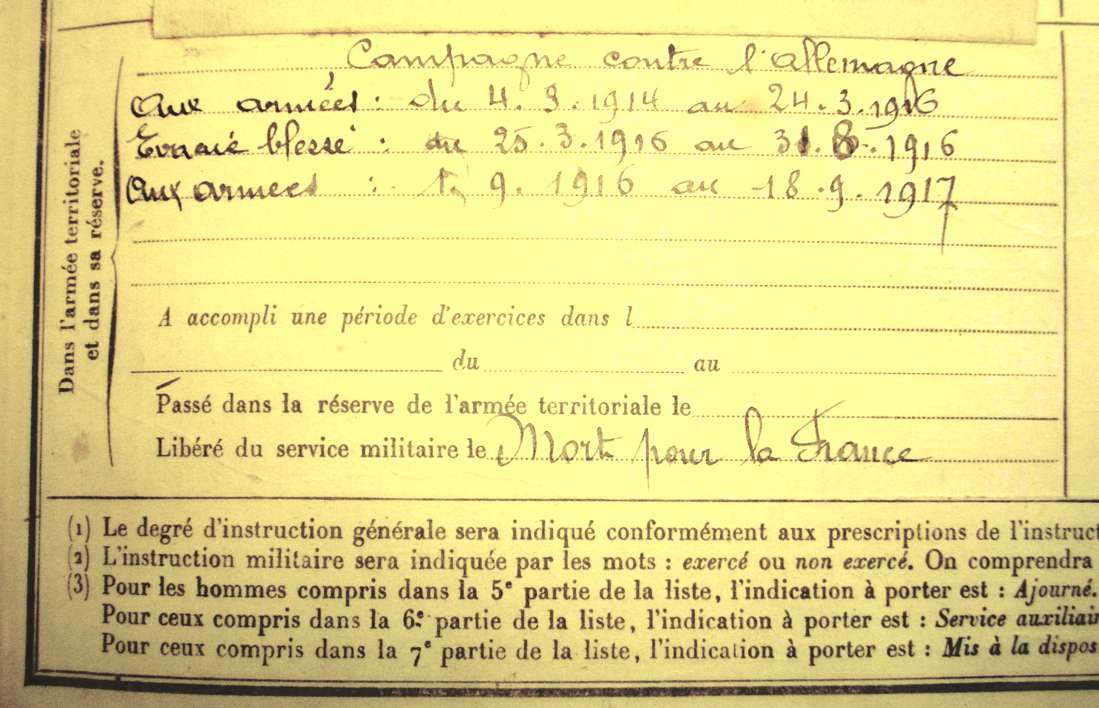 Campagne contre l'Allemagne
Aux armées : du 4. 9. 1914 au 24. 3. 1916
Evacué blessé : du 25. 3. 1916 au 31. 8. 1916
Aux armees : 1. 9. 1916 au 18. 9. 1917
Dans l'armée territoriale
et dans sa réserve.
A accompli une période d'exercices dans l
du au
Passé dans la réserve de l'armée territoriale le
Libéré du service militaire le Mort pour la France
(1) Le degré d'instruction générale sera indiqué conformément aux prescriptions de l'instruct
(2) L'instruction militaire sera indiquée par les mots : exercé ou non exercé. On comprendra
(3) Pour les hommes compris dans la 5e partie de la liste, l'indication à porter est : Ajourné.
Pour ceux compris dans la 6e partie de la liste, l'indication à porter est : Service auxiliair
Pour ceux compris dans la 7e partie de la liste, l'indication à porter est : Mis à la dispos